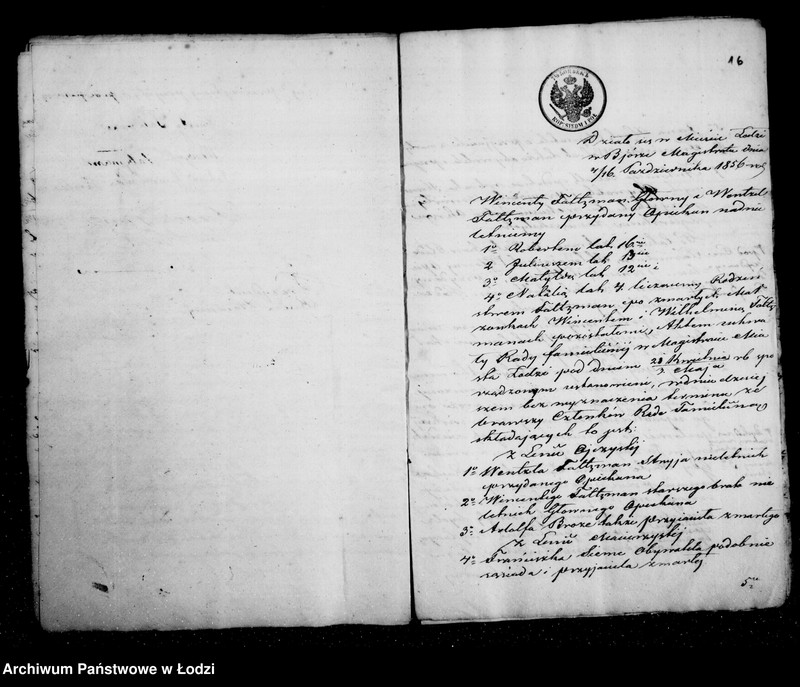 16
KOP. SIEDM I PÓŁ
Działo się w Mieście Łodzi
w Bjórze Magistratu dnia
4/16. Października 1856 r.
Wincenty Saltzman Główny i Wentzel
Saltzman przydany Opiekun nad nie
letniemy
1o Robertem lat 16
2 Juliuszem lat 13
3o Matyldą lat 12 i
4o Natalią lat 4 liczącemy Rodzeń
stwem Saltzman po zmarłych Mał
żonkach Wincentem i Wilhelmeną Saltz
manach pozostałemi, Aktem uchwa
ły Rady familijnej w Magistracie Mia
sta Łodzi pod dniem 23 Kwietnia rb spo
Maja
rządzonym ustanowieni, w dniu dzisiej
szem bez wyznaczenia terminu ze
brawszy Członków Radę Familijną
składających to jest:
z Lenii Ojczystej
1o Wentzla Saltzman Stryja nieletnich
przydanego Opiekuna
2o Wincentego Saltzman starszego brata nie
letnich Głównego Opiekuna
3o Adolfa Broze także przyjaciela zmarłego
z Lenii Macierzystej
4o Franciszka Sieme Obywatela podobnie
sąsiada i przyjaciela zmarłej
Archiwum Państwowe w Łodzi